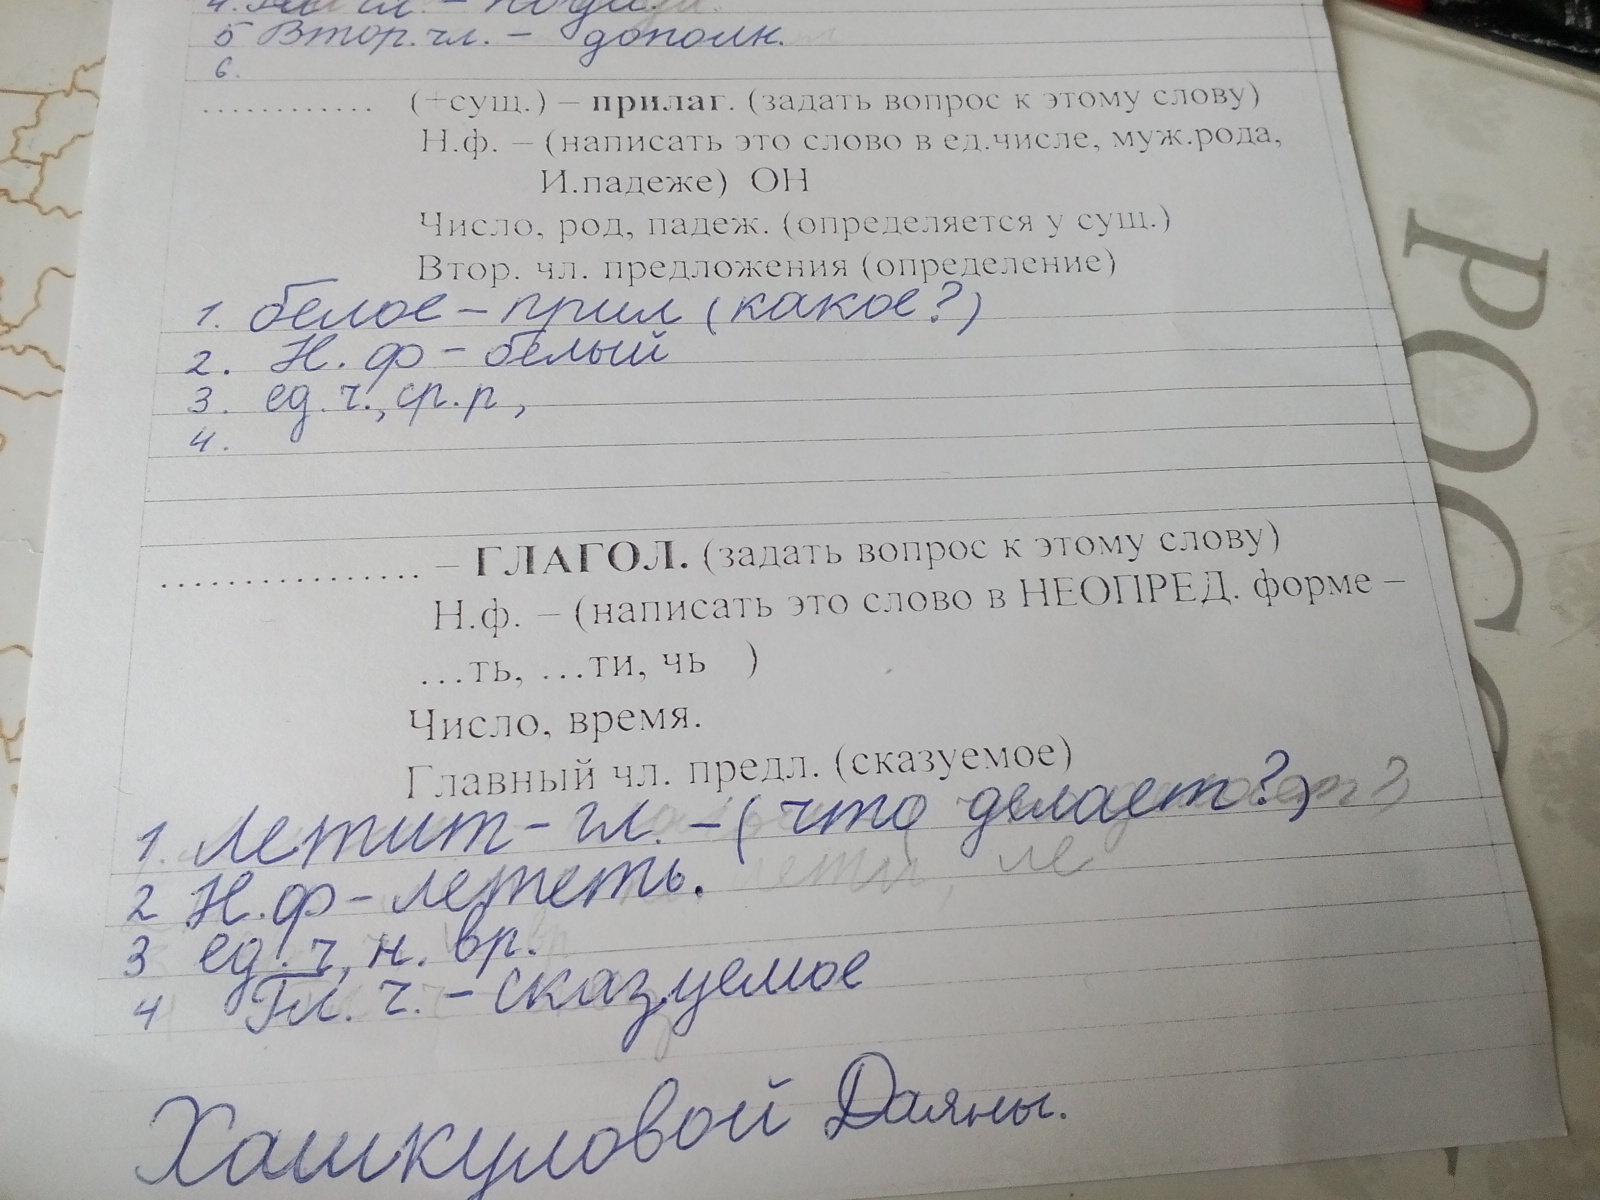 5 Втор. чл. – дополн.
6.
............ (+сущ.) – прилаг. (задать вопрос к этому слову)
Н.ф. – (написать это слово в ед.числе, муж.рода,
И.падеже) ОН
Число, род, падеж. (определяется у сущ.)
Втор. чл. предложения (определение)
1. белое – прил (какое?)
2. Н. ф – белый
3. ед. ч., ср. р,
4.
................ – ГЛАГОЛ. (задать вопрос к этому слову)
Н.ф. – (написать это слово в НЕОПРЕД. форме –
...ть, ...ти, чь )
Число, время.
Главный чл. предл. (сказуемое)
1. Летит – гл. – (что делает?)
2 Н.ф – лететь.
3 ед. ч, н. вр.
4 Гл. ч. – сказуемое
Хашкуловой Даяны.
РОСС